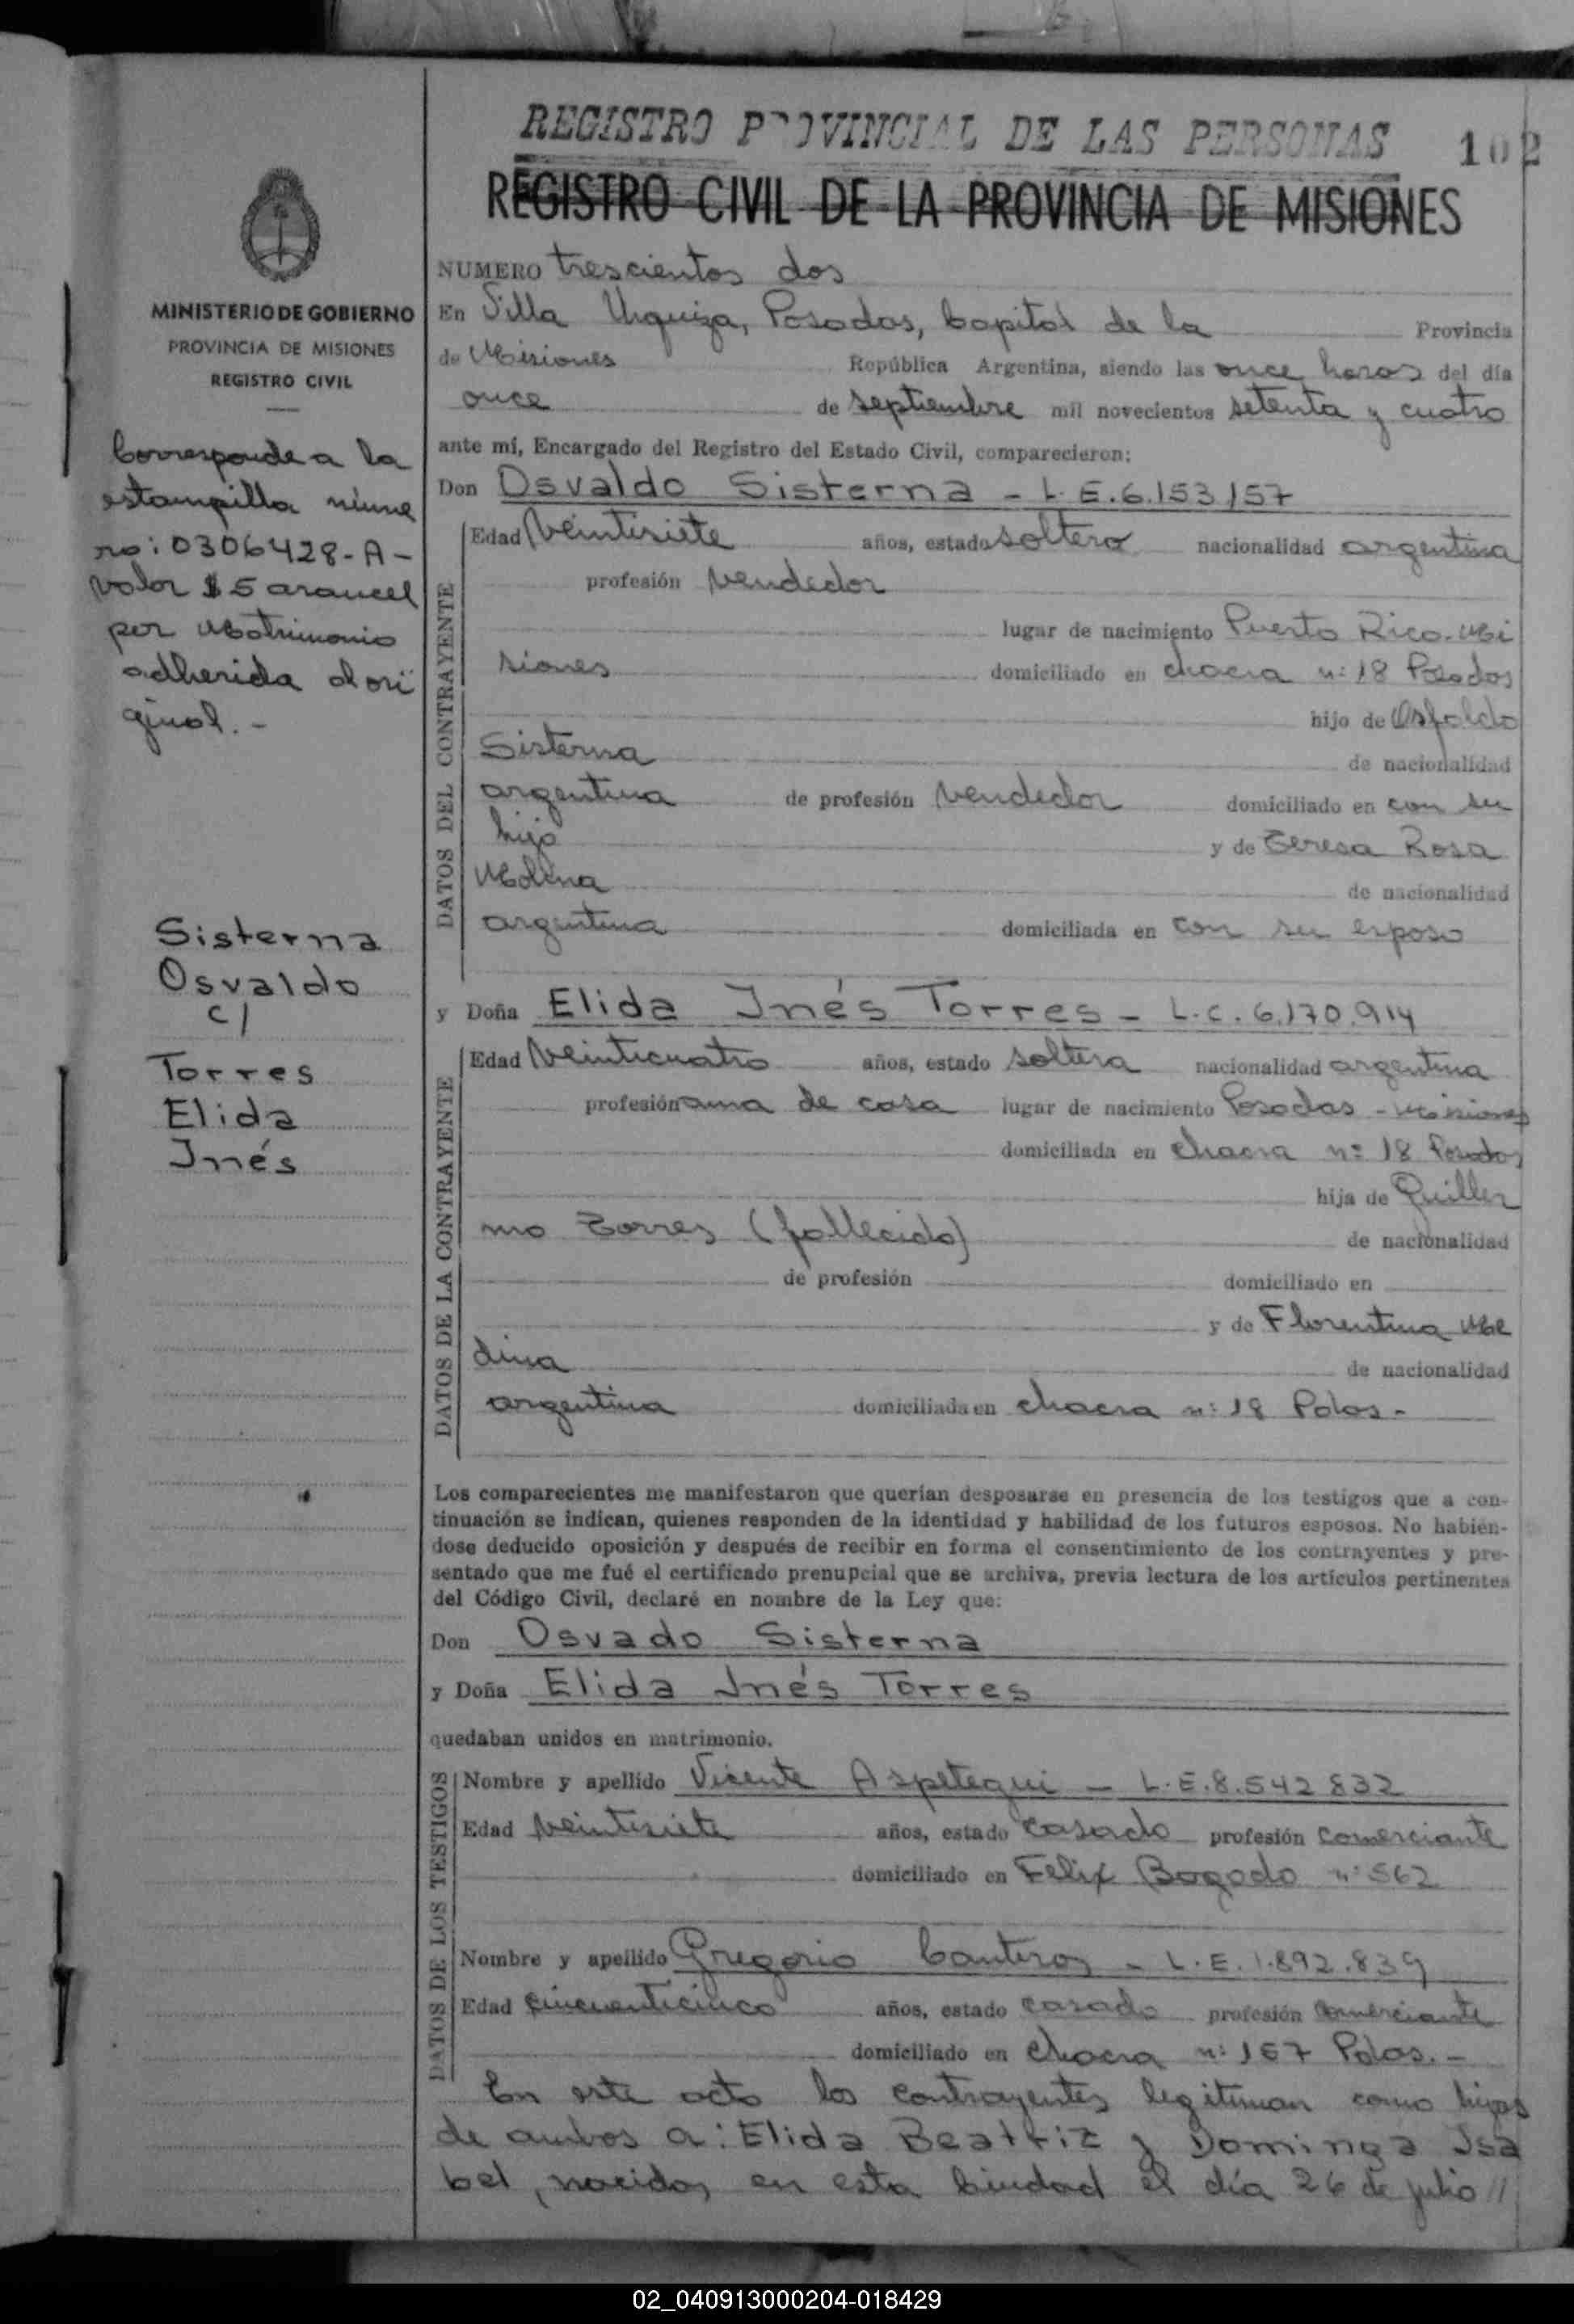 REGISTRO PROVINCIAL DE LAS PERSONAS 102
REGISTRO CIVIL DE LA PROVINCIA DE MISIONES
MINISTERIO DE GOBIERNO
PROVINCIA DE MISIONES
REGISTRO CIVIL
Corresponde a la
estampilla núme
ro: 0306428-A-
valor $5 arancel
por Matrimonio
adherida al ori
ginal.-
Sisterna
Osvaldo
c/
Torres
Elida
Inés
NUMERO trescientos dos
En Villa Urquiza, Posadas, Capital de la Provincia
de Misiones República Argentina, siendo las once horas del día
once de septiembre mil novecientos setenta y cuatro
ante mí, Encargado del Registro del Estado Civil, comparecieron:
Don Osvaldo Sisterna - L.E.6.153.157
DATOS DEL CONTRAYENTE
Edad veintisiete años, estado soltero nacionalidad argentina
profesión vendedor
lugar de nacimiento Puerto Rico-Mi
siones domiciliado en chacra n: 18 Posadas
hijo de Osfaldo
Sisterna de nacionalidad
argentina de profesión vendedor domiciliado en con su
hijo y de Teresa Rosa
Molina de nacionalidad
argentina domiciliada en con su esposo
y Doña Elida Inés Torres - L.C. 6.170.914
DATOS DE LA CONTRAYENTE
Edad veinticuatro años, estado soltera nacionalidad argentina
profesión ama de casa lugar de nacimiento Posadas - Misiones
domiciliada en chacra n: 18 Posadas
hija de Guiller
mo Torres (fallecido) de nacionalidad
de profesión domiciliado en
y de Florentina Me
dina de nacionalidad
argentina domiciliada en chacra n: 18 Pdas.-
Los comparecientes me manifestaron que querían desposarse en presencia de los testigos que a con-
tinuación se indican, quienes responden de la identidad y habilidad de los futuros esposos. No habién-
dose deducido oposición y después de recibir en forma el consentimiento de los contrayentes y pre-
sentado que me fué el certificado prenupcial que se archiva, previa lectura de los artículos pertinentes
del Código Civil, declaré en nombre de la Ley que:
Don Osvado Sisterna
y Doña Elida Inés Torres
quedaban unidos en matrimonio.
DATOS DE LOS TESTIGOS
Nombre y apellido Vicente Aspetegui - L.E.8.542 832
Edad veintisiete años, estado casado profesión comerciante
domiciliado en Felix Bogado n: 562
Nombre y apellido Gregorio Canteros - L.E.1.892.839
Edad cincuenticinco años, estado casado profesión comerciante
domiciliado en chacra n: 157 Pdas.-
En este acto los contrayentes legitiman como hijas
de ambos a: Elida Beatriz y Dominga Isa
bel, nacidas en esta Ciudad el día 26 de julio //
02_040913000204-018429